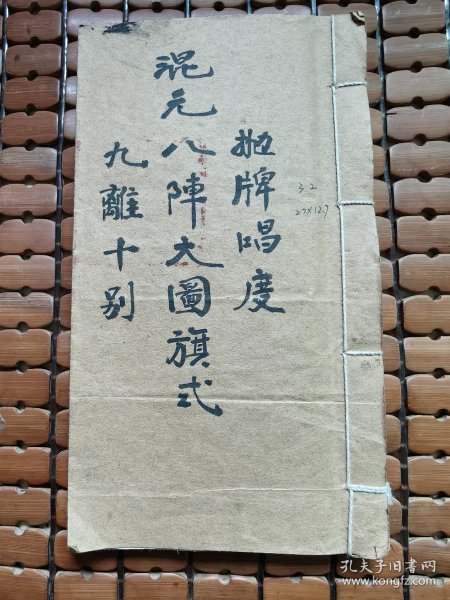 拋牌唱度
混元八陣大圖旗式
九離十别
3.2
27X12.7
孔夫子旧书网
www.kongfz.com